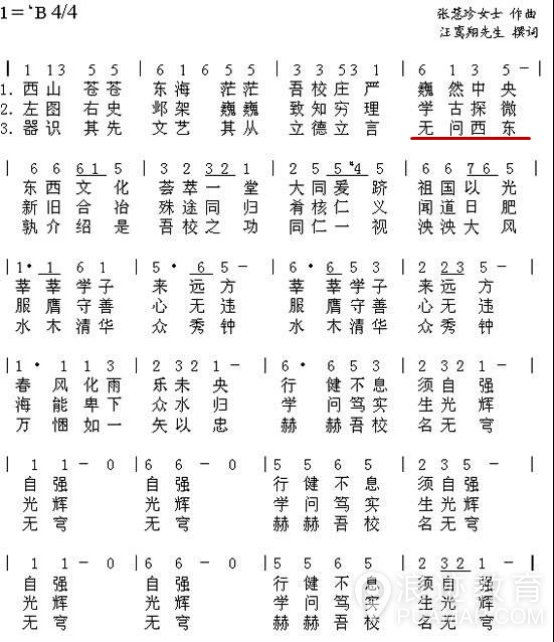 1=♭B 4/4
张慧珍女士 作曲
汪鸾翔先生 撰词
| 1 13 5 5 | 6 1 6 5 | 3 5 2 3 | 6 1 3 5 – |
1. 西山 苍苍 东海 茫茫 吾校庄严 巍然中央
2. 左图 右史 邺架 巍巍 致知穷理 学古探微
3. 器识 其先 文艺 其从 立德立言 无问西东
| 6 6 6 1 5 | 3 2 3 2 1 | 2 5 5 ♯4 5 | 6 6 7 6 5 |
东西文化 荟萃一堂 大同爰跻 祖国以光
新旧合冶 殊途同归 肴核仁义 闻道日肥
孰介绍是 吾校之功 同仁一视 泱泱大风
| 1· 1 6 1 | 5 · 6 5 – | 6· 6 5 3 | 2 23 5 – |
莘莘学子 来远方 莘莘学子 来远方
服膺守善 心无违 服膺守善 心无违
水木清华 众秀钟 水木清华 众秀钟
| 1 · 1 1 3 | 2 3 2 1 – | 6 · 6 5 3 | 2 3 2 1 – |
春风化雨 乐未央 行健不息 须自强
海能卑下 众水归 学问笃实 生光辉
万悃如一 矢以忠 赫赫吾校 名无穹
| 1 1 – 0 | 6 6 – 0 | 5 5 6 5 | 2 3 5 – |
自强 自强 行健不息 须自强
光辉 光辉 学问笃实 生光辉
无穹 无穹 赫赫吾校 名无穹
| 1 1 – 0 | 6 6 – 0 | 5 5 6 5 | 2 32 1 – |
自强 自强 行健不息 须自强
光辉 光辉 学问笃实 生光辉
无穹 无穹 赫赫吾校 名无穹
浪迹教育